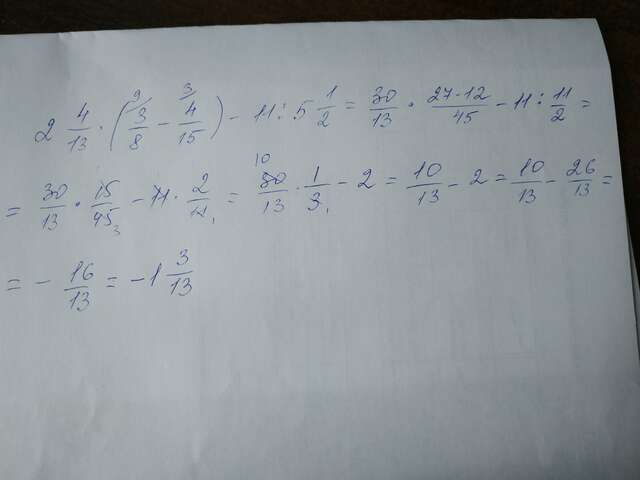 2 4/13 · (3/8 - 4/15) - 11 : 5 1/2 = 30/13 · (27-12)/45 - 11 : 11/2 =
= 30/13 · 15/45 - 11 · 2/11 = 30/13 · 1/3 - 2 = 10/13 - 2 = 10/13 - 26/13 =
= - 16/13 = -1 3/13